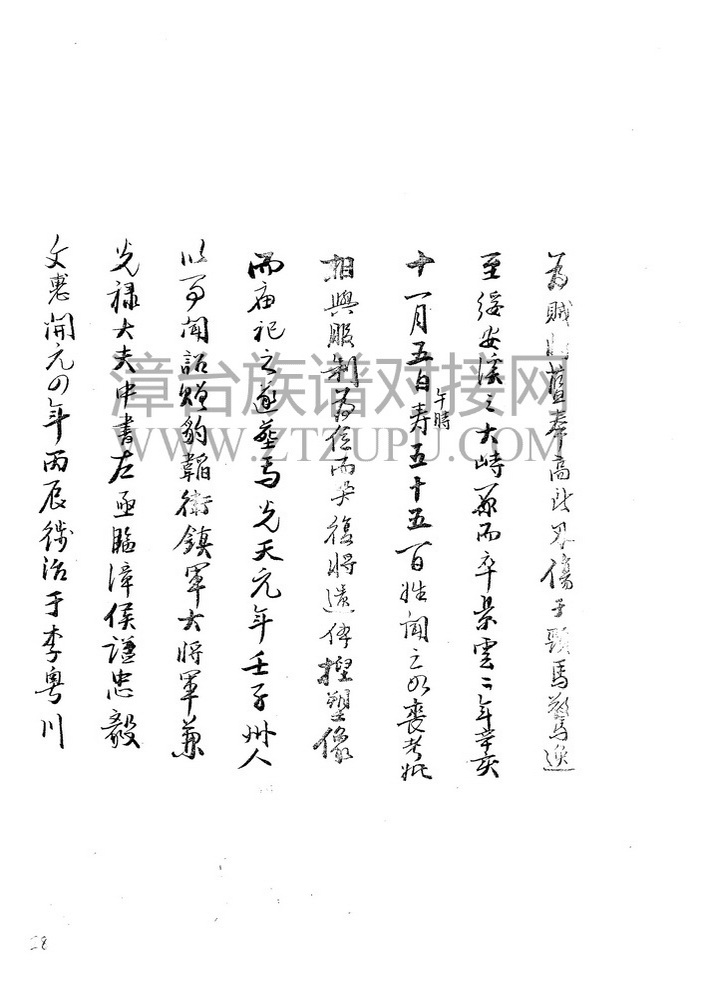 為賊將藍奉高所刃傷于頸馬驚逸
至綏安溪之大峙原而卒景雲二年辛亥
十一月五日寿五十五百姓聞之如喪考妣
午時
相與服制為位而哭復將遺体捏塑像
而庙祀之遂塟焉先天元年壬子州人
以事聞詔贈豹韜衛鎮軍大將軍兼
光禄大夫中書左丞臨漳侯諡忠毅
文惠開元四年丙辰徙治于李粤川
漳台族谱对接网
WWW.ZTZUPU.COM
28